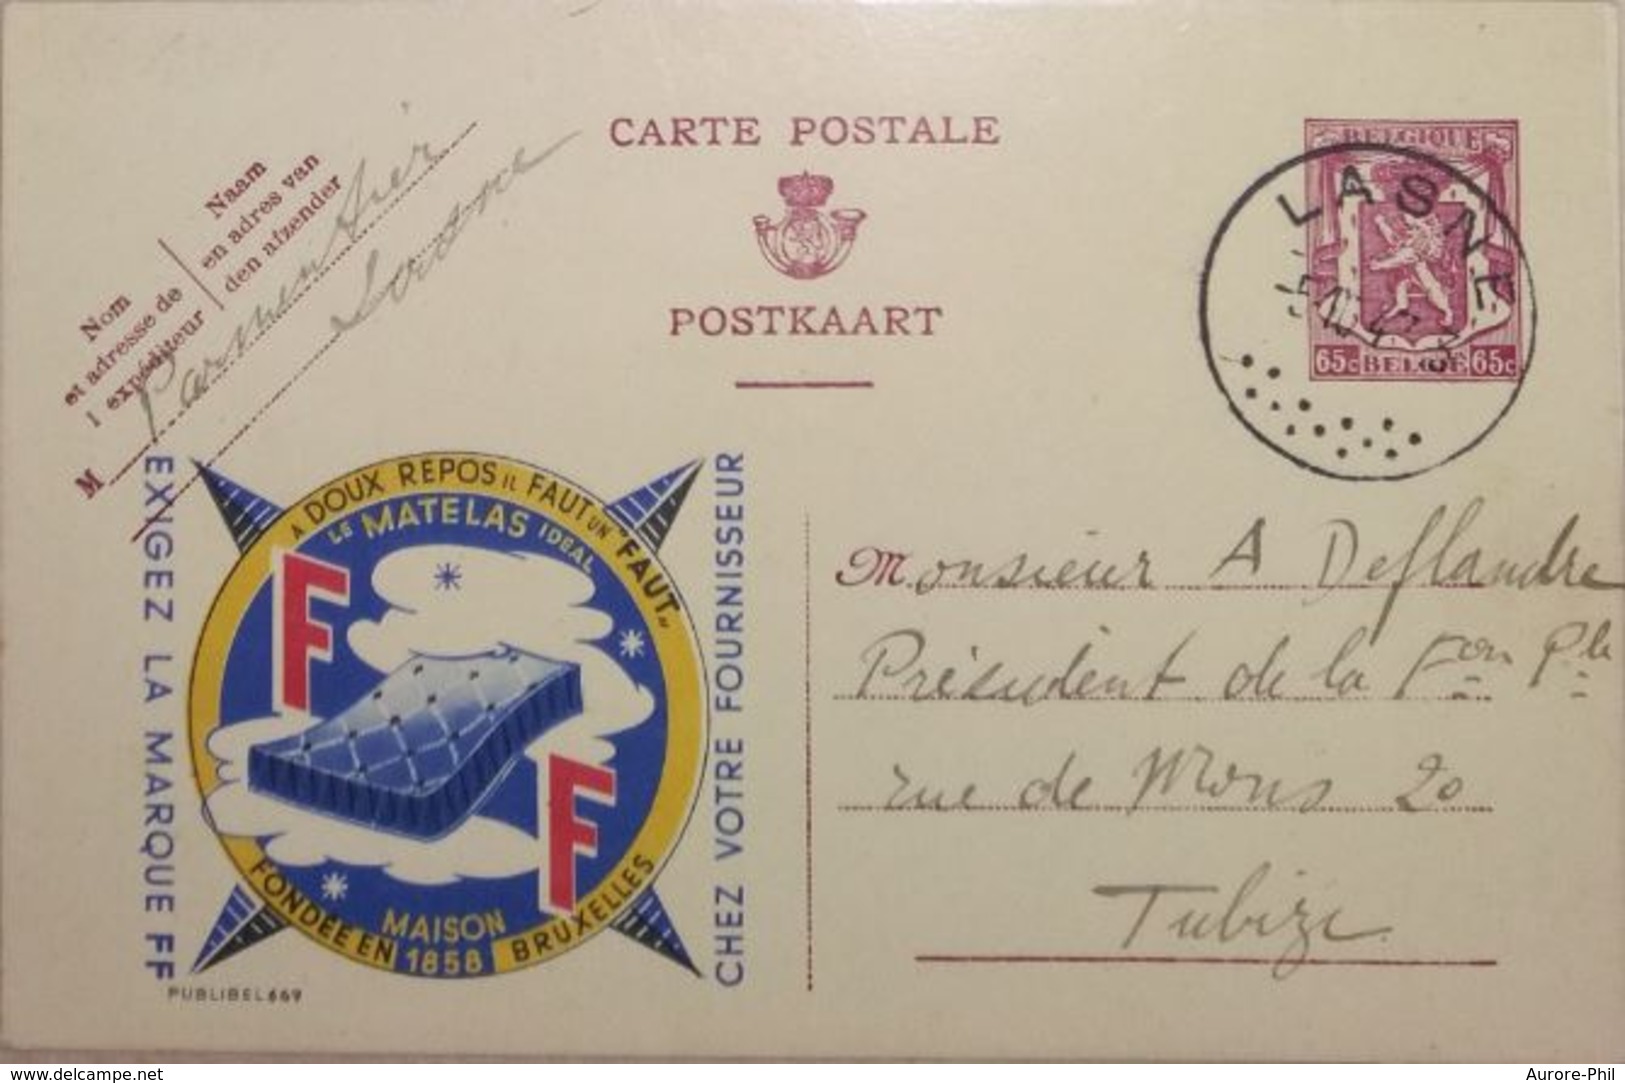 CARTE POSTALE
POSTKAART
Naam
en adres van
den afzender
Nom
et adresse de
l expéditeur
M Parmentier
BELGIQUE
65c BELGIE 65c
LASNE
EXIGEZ LA MARQUE FF
A DOUX REPOS IL FAUT UN "FAUT"
LE MATELAS IDEAL
F
F
MAISON
FONDÉE EN 1858 BRUXELLES
CHEZ VOTRE FOURNISSEUR
PUBLIBEL 669
Monsieur A Deflandre
Président de la Fon Ple
rue de Mons 20
Tubize
delcampe.net
Aurore-Phil